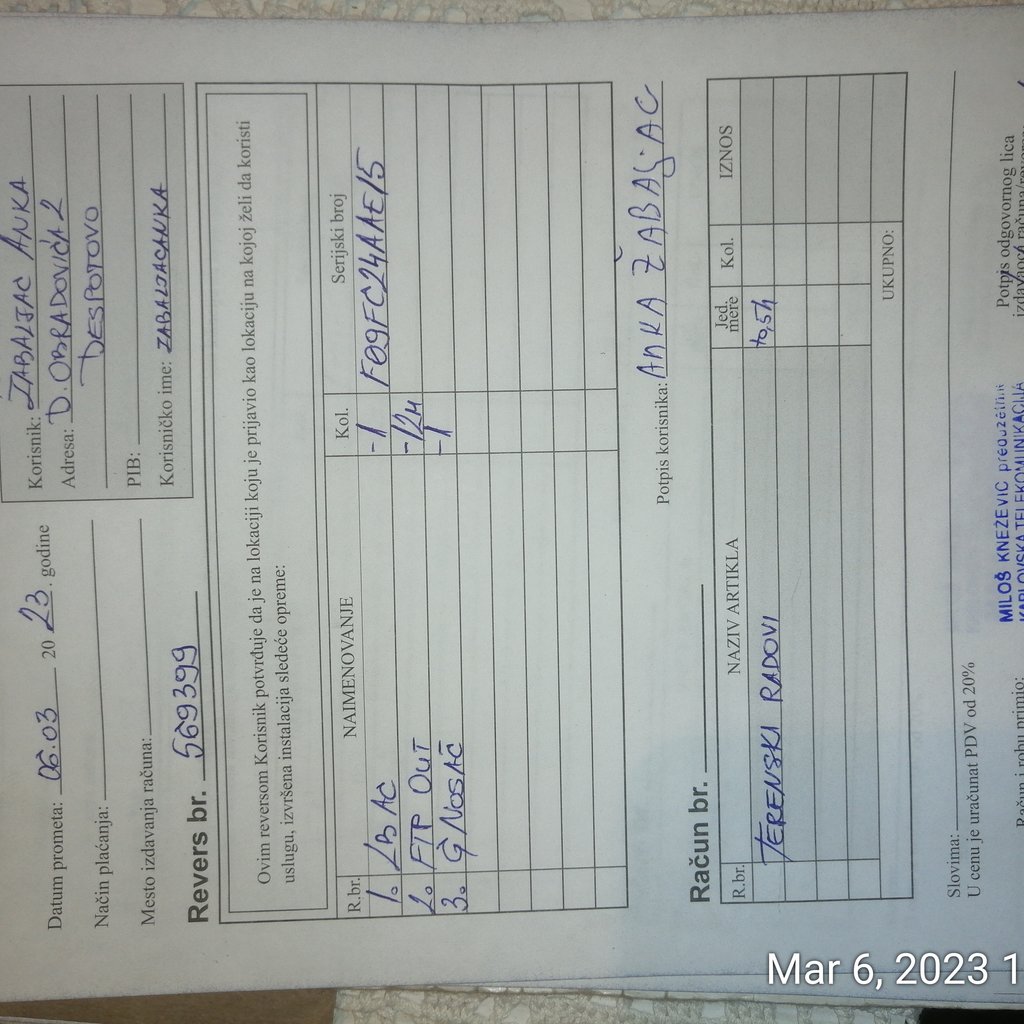 Datum prometa: 06.03 2023. godine
Način plaćanja:
Mesto izdavanja računa:
Korisnik: ŽABALJAC ANKA
Adresa: D. OBRADOVIĆA 2
DESPOTOVO
PIB:
Korisničko ime: ZABALJACANKA
Revers br. 569399
Ovim reversom Korisnik potvrđuje da je na lokaciji koju je prijavio kao lokaciju na kojoj želi da koristi
uslugu, izvršena instalacija sledeće opreme:
R.br. NAIMENOVANJE Kol. Serijski broj
1. LBAC -1 F09FC24AAE15
2. FTP OUT -12M
3. GNOSAČ -1
Potpis korisnika: ANKA ŽABALJAC
Račun br.
R.br. NAZIV ARTIKLA Jed. mere Kol. IZNOS
TERENSKI RADOVI
UKUPNO:
Slovima:
U cenu je uračunat PDV od 20%
Račun i robu primio:
MILOŠ KNEŽEVIĆ preduzetnik
KARLOVSKA TELEKOMUNIKACIJA
Potpis odgovornog lica
Mar 6, 2023 1